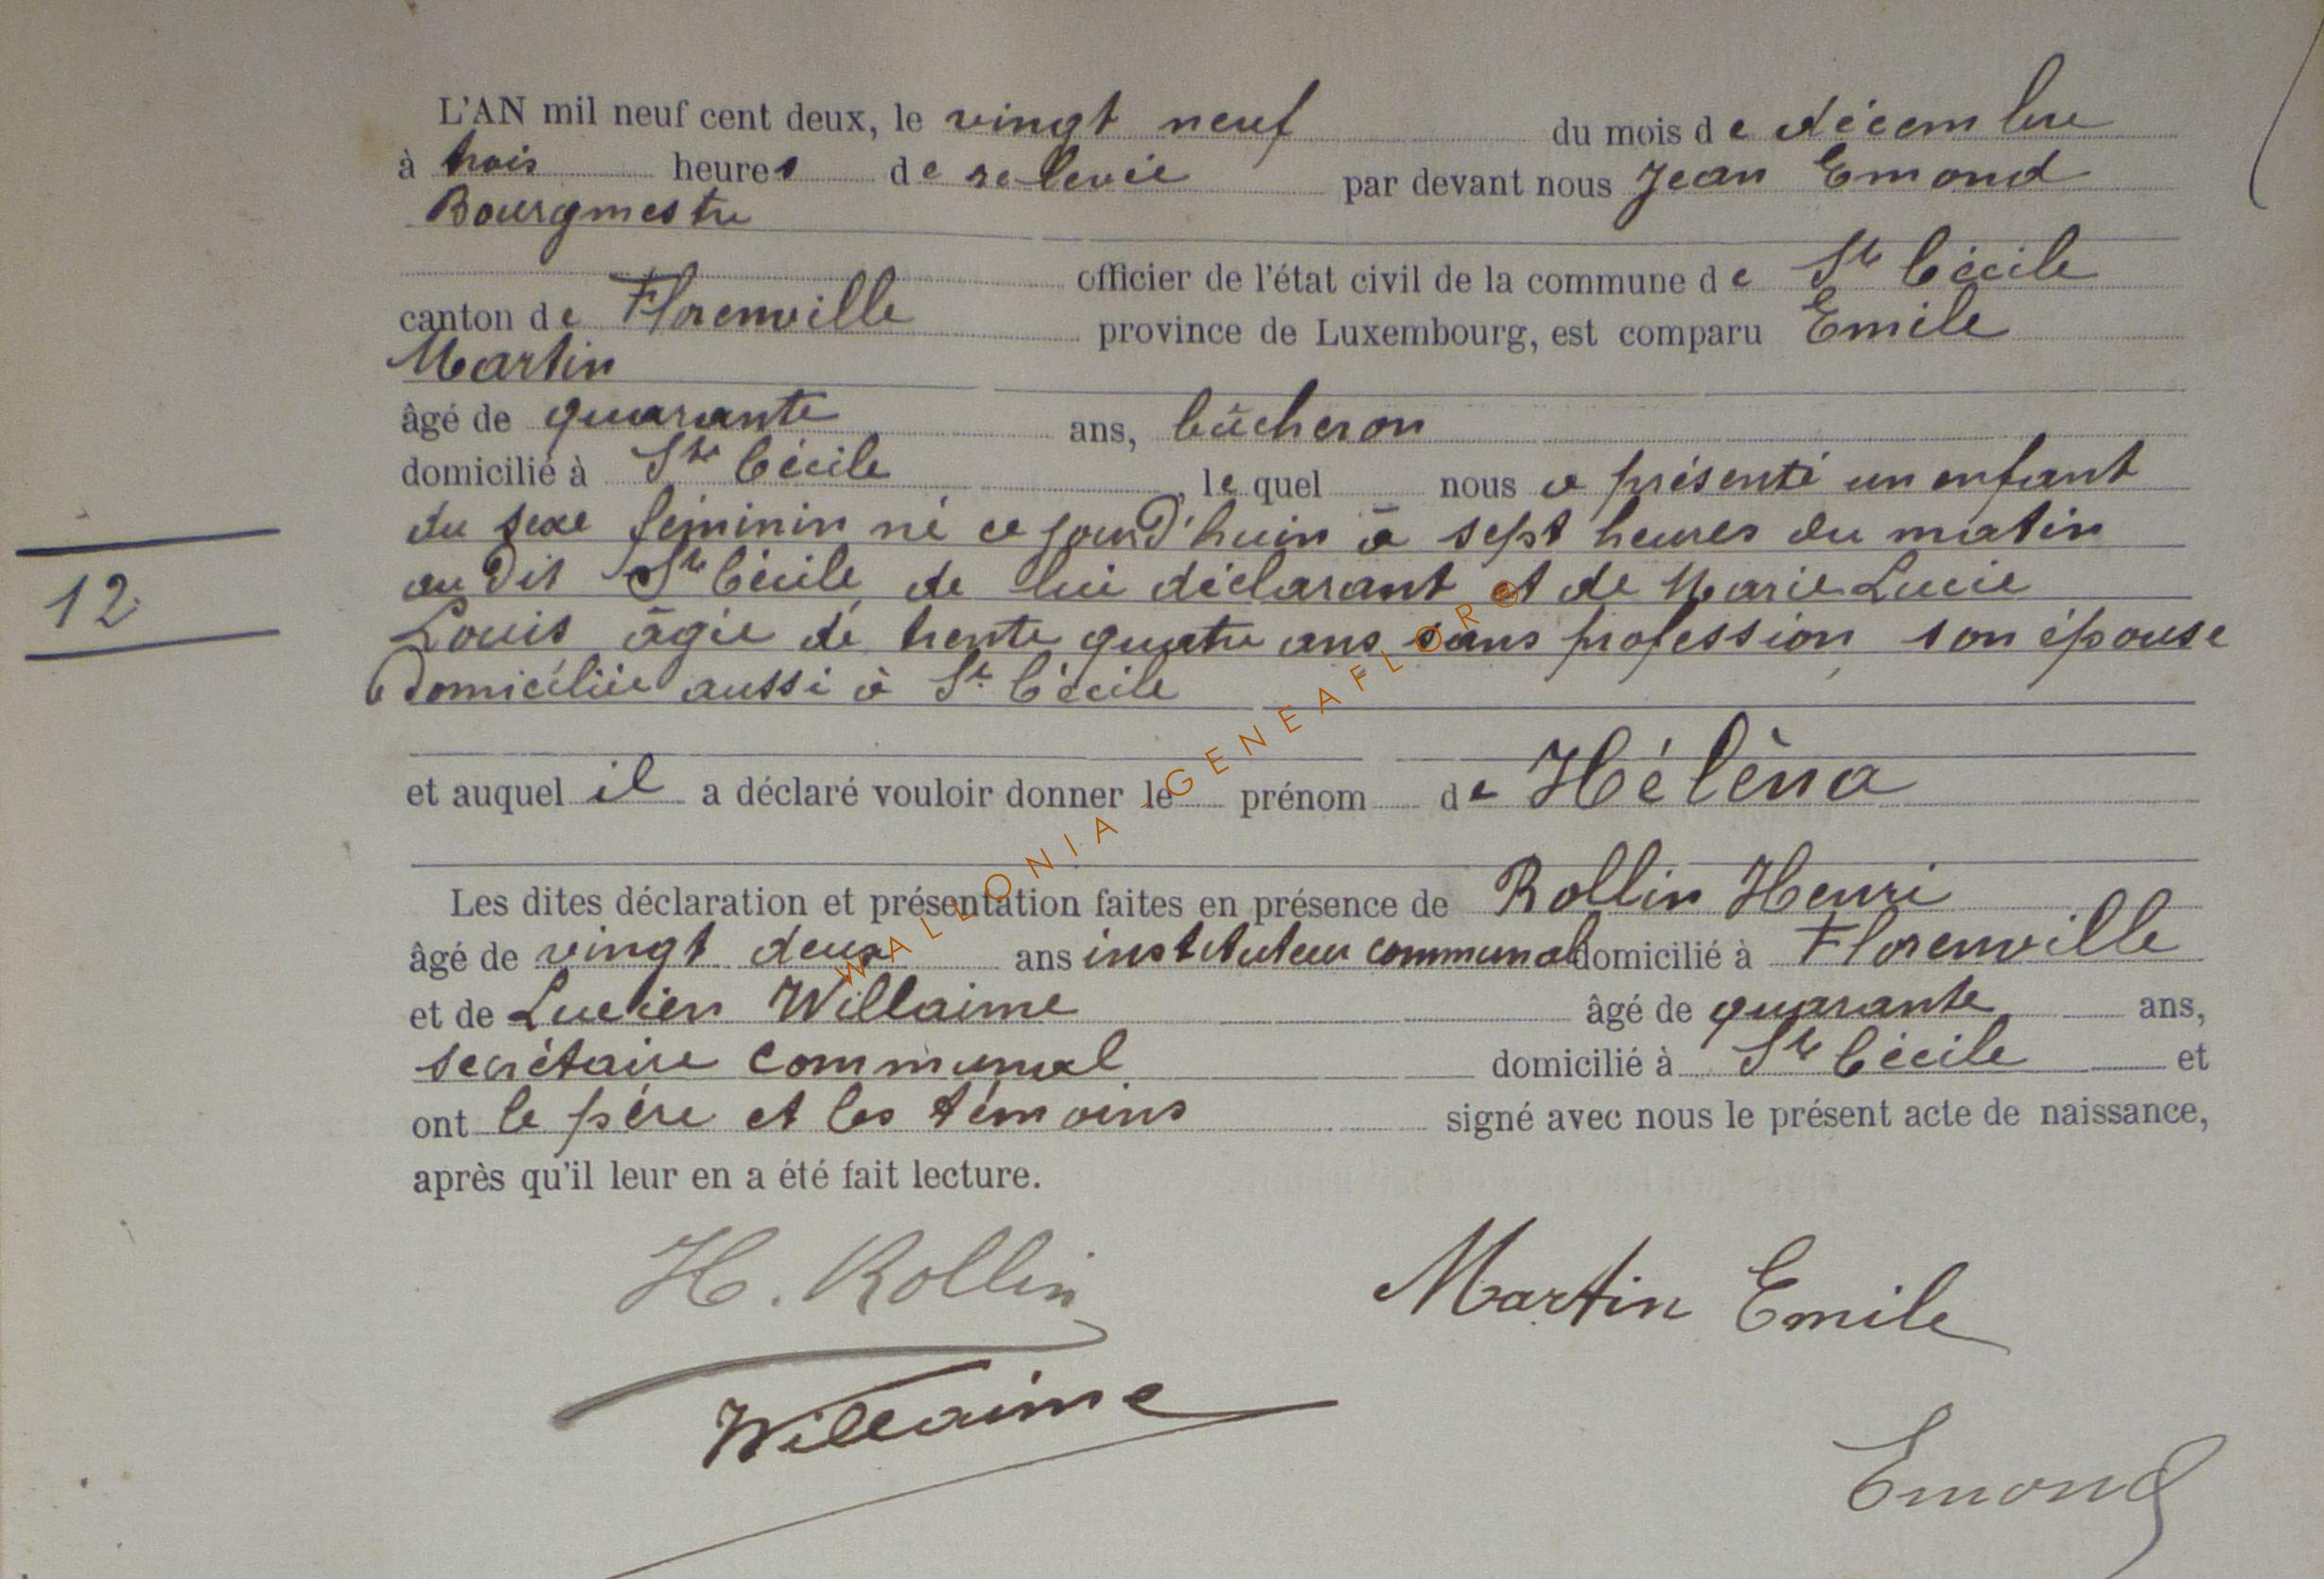 L'AN mil neuf cent deux, le vingt neuf du mois de décembre
à trois heures de relevée par devant nous Jean Emond
Bourgmestre
officier de l'état civil de la commune de Ste Cécile
canton de Florenville province de Luxembourg, est comparu Emile
Martin
âgé de quarante ans, bûcheron
domicilié à Ste Cécile, lequel nous a présenté un enfant
du sexe féminin né ce jourd'huin à sept heures du matin
au dit Ste Cécile, de lui déclarant et de Marie Lucie
12
Louis âgée de trente quatre ans sans profession, son épouse
domiciliée aussi à Ste Cécile
et auquel il a déclaré vouloir donner le prénom de Hélèna
Les dites déclaration et présentation faites en présence de Rollin Henri
âgé de vingt deux ans instituteur communal domicilié à Florenville
et de Lucien Willaime âgé de quarante ans,
secrétaire communal domicilié à Ste Cécile et
ont le père et les témoins signé avec nous le présent acte de naissance,
après qu'il leur en a été fait lecture.
H. Rollin Martin Emile
Willaime
Emond
WALLONIA GENEAFLOR©